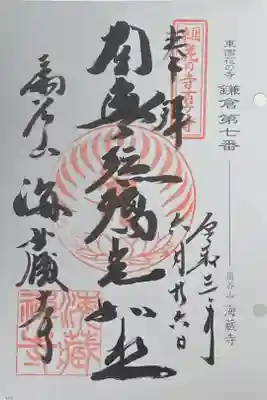 東国花の寺
鎌倉第七番
扇谷山 海蔵寺
東国花の寺百ヶ寺
奉拝
令和三年
六月廿六日
南無瑠璃光如来
扇谷山
海蔵寺